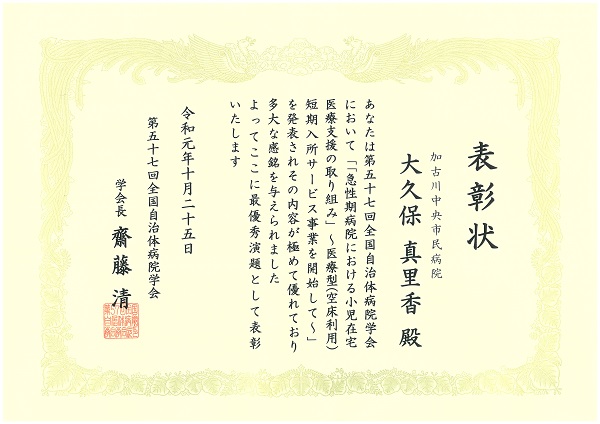 表彰状
加古川中央市民病院
大久保 真里香 殿
あなたは第五十七回全国自治体病院学会
において「「急性期病院における小児在宅
医療支援の取り組み」～医療型(空床利用)
短期入所サービス事業を開始して～」
を発表されその内容が極めて優れており
多大な感銘を与えられました
よってここに最優秀演題として表彰
いたします
令和元年十月二十五日
第五十七回全国自治体病院学会
学会長 齋藤 清